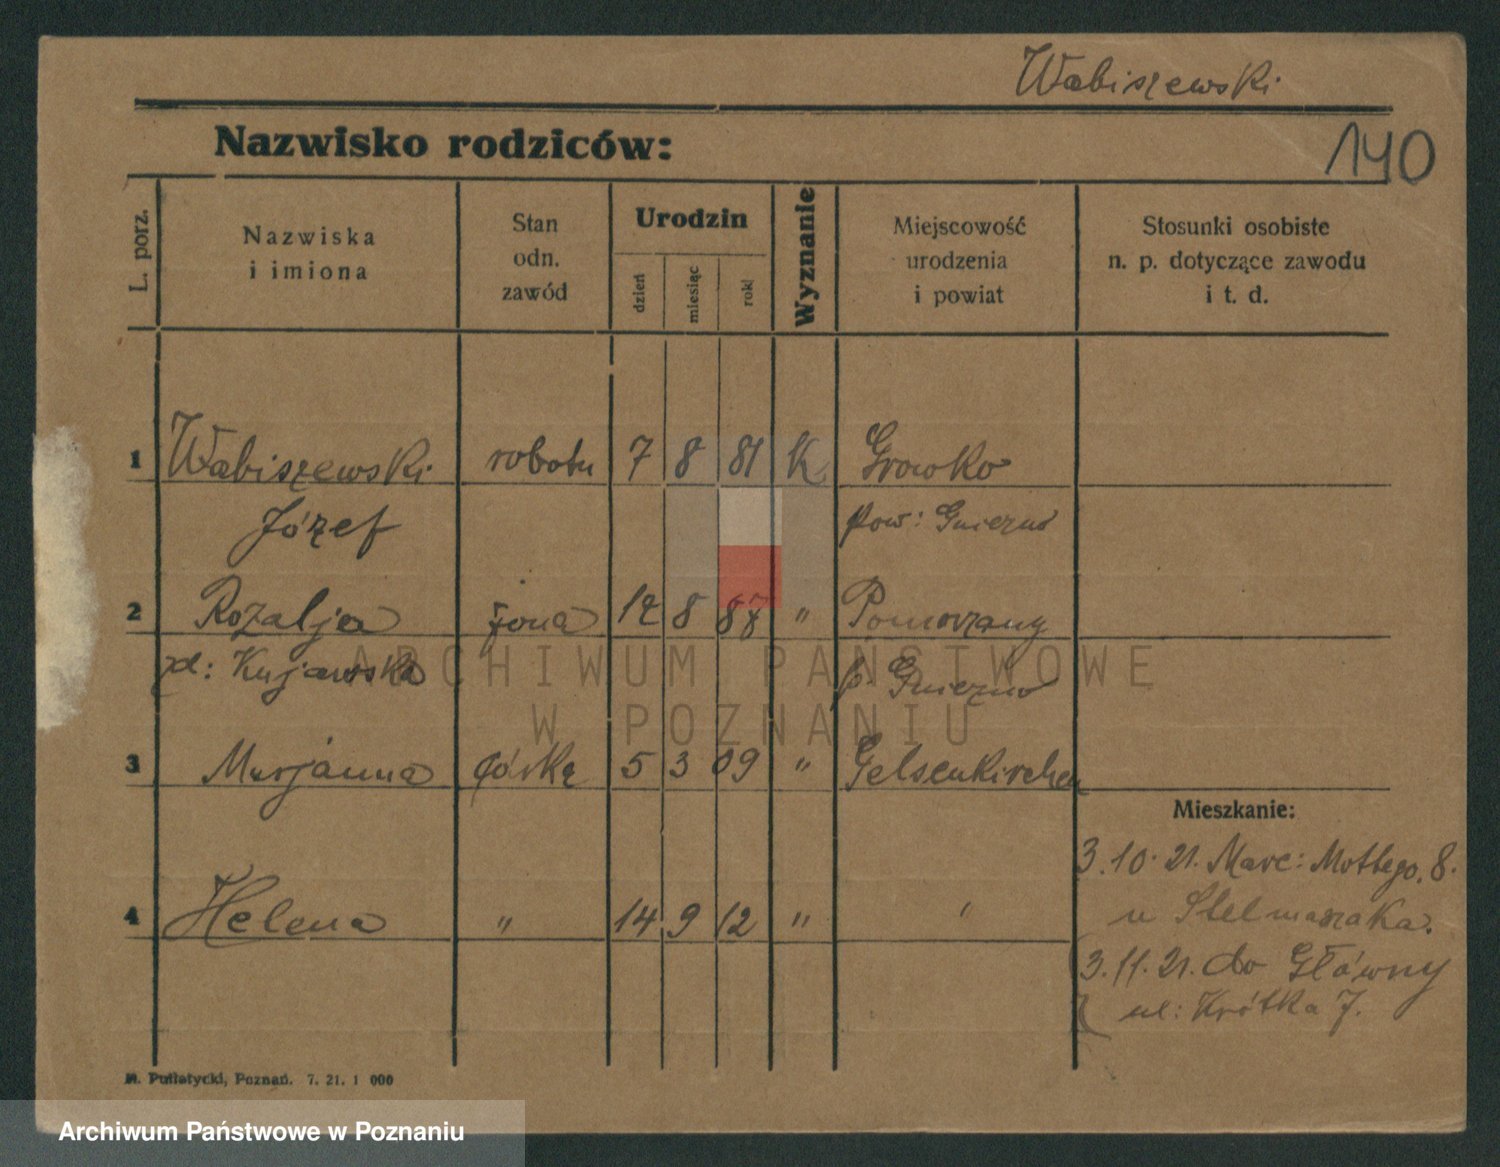 Wabiszewski
Nazwisko rodziców:
140
L. porz.
Nazwiska
i imiona
Stan
odn.
zawód
Urodzin
dzień
miesiąc
rok
Wyznanie
Miejscowość
urodzenia
i powiat
Stosunki osobiste
n. p. dotyczące zawodu
i t. d.
1 Wabiszewski robotn 7 8 81 K Growko
Józef pow: Gniezno
2 Rozalja żona 12 8 "  Pomorzany
zd: Kujawska p. Gniezno
3 Marjanna córka 5 3 09 " Gelsenkirchen
Mieszkanie:
3.10.21. Marc: Mottego. 8.
4 Helena " 14 9 12 " "
u Stelmaszaka.
3.11.21. do Główny
ul: Krótka 7.
M. Putiatycki, Poznań. 7. 21. 1 000
ARCHIWUM PAŃSTWOWE
W POZNANIU
Archiwum Państwowe w Poznaniu